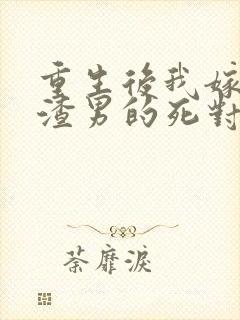 重生後我嫁
渣男的死對
荼靡淚